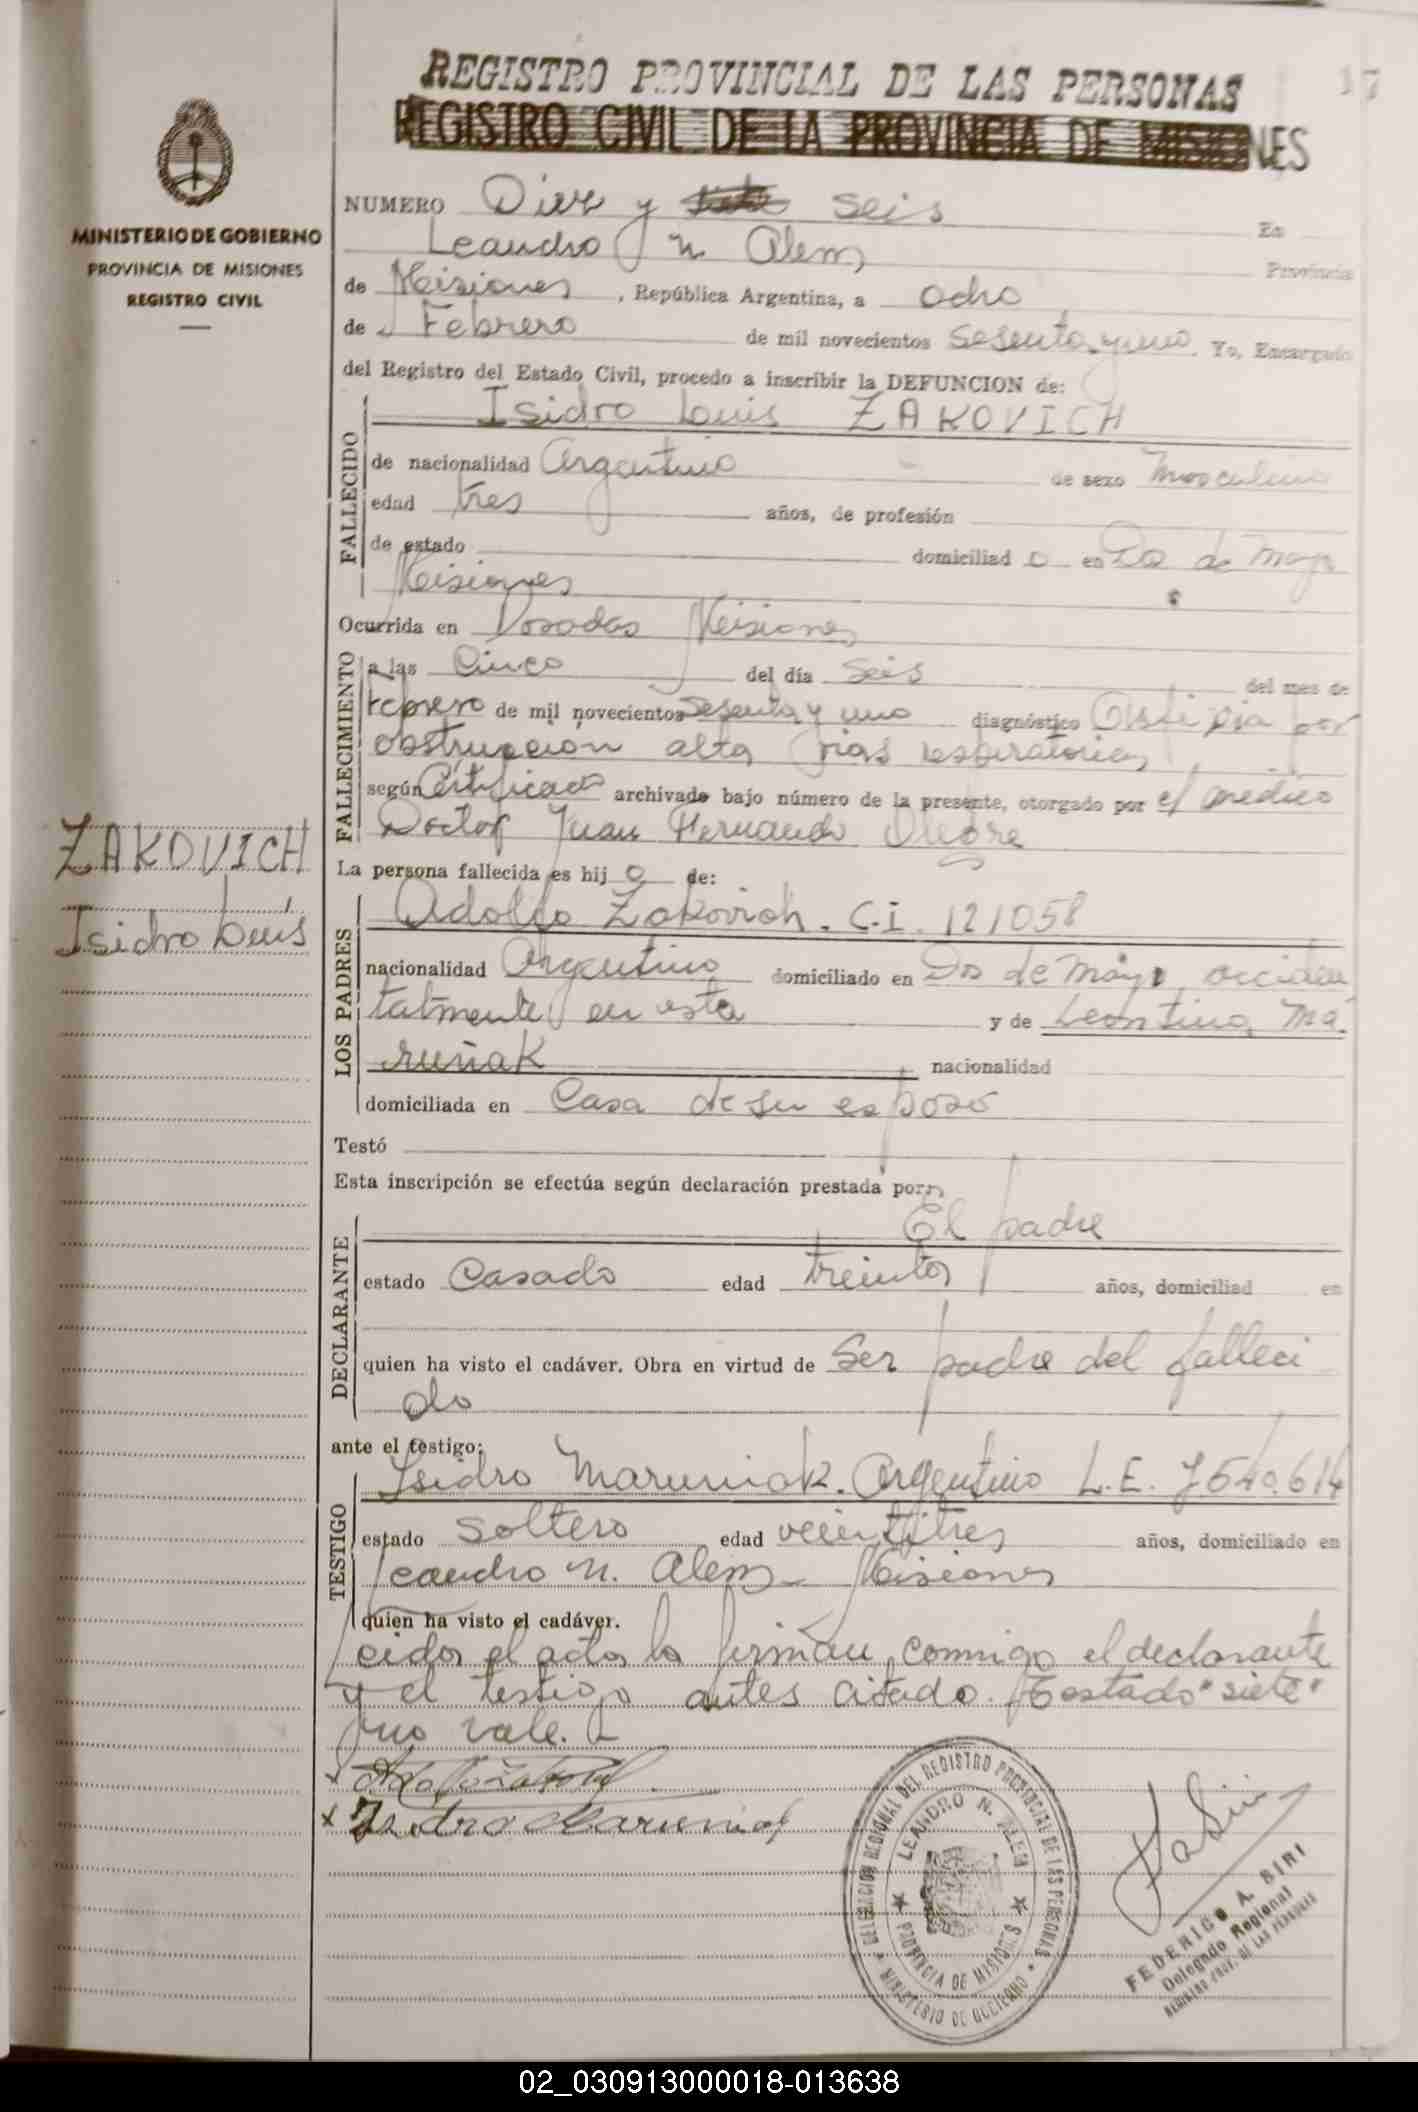 17
REGISTRO PROVINCIAL DE LAS PERSONAS
REGISTRO CIVIL DE LA PROVINCIA DE MISIONES
MINISTERIO DE GOBIERNO
PROVINCIA DE MISIONES
REGISTRO CIVIL
NUMERO Diez y siete seis En
Leandro N Alem Provincia
de Misiones, República Argentina, a ocho
de Febrero de mil novecientos sesenta y uno. Yo, Encargado
del Registro del Estado Civil, procedo a inscribir la DEFUNCION de:
FALLECIDO
Isidro Luis ZAKOVICH
de nacionalidad Argentino de sexo Masculino
edad tres años, de profesión
de estado domiciliad o en Dos de Mayo
Misiones
Ocurrida en Posadas Misiones
FALLECIMIENTO
a las Cinco del día seis del mes de
Febrero de mil novecientos sesenta y uno diagnóstico Asfixia por
obstrucción alta vias respiratorias
según Certificado archivado bajo número de la presente, otorgado por el médico
Doctor Juan Fernando Alegre
ZAKOVICH
Isidro Luis
La persona fallecida es hij o de:
LOS PADRES
Adolfo Zakovich. C.I. 121058
nacionalidad Argentino domiciliado en Dos de Mayo acciden
talmente en esta y de Leontina Ma-
ruñak nacionalidad
domiciliada en Casa de su esposo
Testó
Esta inscripción se efectúa según declaración prestada por:
DECLARANTE
El padre
estado Casado edad treinta años, domiciliad en
quien ha visto el cadáver. Obra en virtud de Ser padre del falleci
do
ante el testigo:
TESTIGO
Isidro Maruniak. Argentino L.E. 7.540.614
estado Soltero edad veintitres años, domiciliado en
Leandro N. Alem - Misiones
quien ha visto el cadáver.
Leida el acta la firman conmigo el declarante
y el testigo antes citado. Testado "siete"
no vale.
x
x Isidro Maruniak
DELEGACION REGIONAL DEL REGISTRO PROVINCIAL DE LAS PERSONAS
MINISTERIO DE GOBIERNO
LEANDRO N. ALEM
PROVINCIA DE MISIONES
FEDERICO A. SIRI
Delegado Regional
REGISTRO PROV. DE LAS PERSONAS
02_030913000018-013638